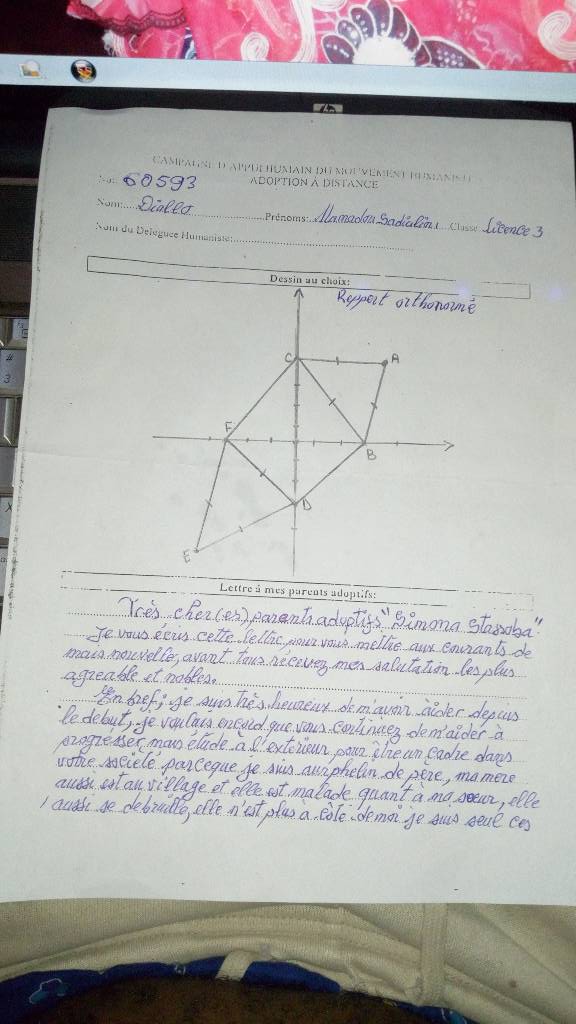 CAMPAGNE D'APPUI HUMAIN DU MOUVEMENT HUMANISTE
ADOPTION À DISTANCE
No: 60593
Nom: Diallo Prénoms: Mamadou Sadialiou Classe Licence 3
Nom du Déléguée Humaniste:
Dessin au choix:
Reppert orthonormé
C A
F B
D
E
Lettre à mes parents adoptifs:
Très cher(es) parents adoptifs "Simona Stassoba"
Je vous écris cette lettre, pour vous mettre aux courants de
mais nouvelle, avant tous récevez mes salutation les plus
agreable et nobles.
En bref; je suis très heureux de m'avoir aider depuis
le debut, je voulais encord que vous continuez de m'aider à
progrésser mais étude à l'extérieur pour être un cadre dans
votre société parceque je suis aurphelin de père, ma mère
aussi est au village et elle est malade quant à ma sœur, elle
aussi se debruille, elle n'est plus à côté de moi je suis seul ces